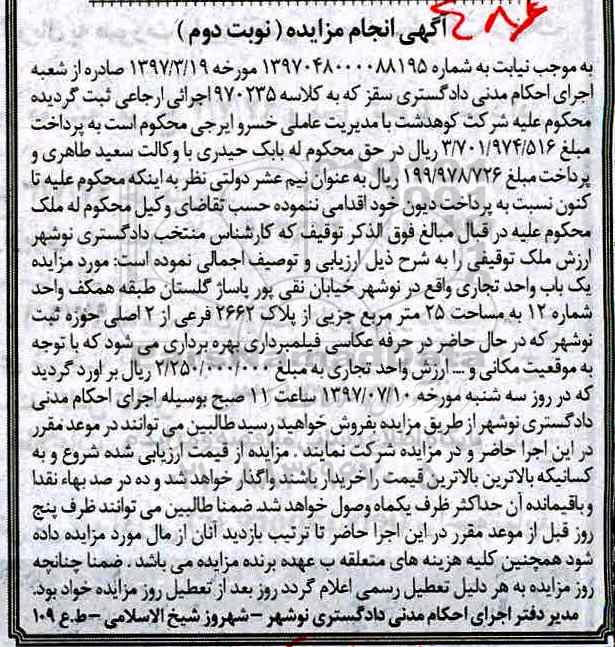 ۴۸۶
آگهی انجام مزایده (نوبت دوم)
به موجب نیابت به شماره ۱۳۹۷۰۴۸۰۰۰۰۸۸۱۹۵ مورخه ۱۳۹۷/۳/۱۹ صادره از شعبه
اجرای احکام مدنی دادگستری سقز که به کلاسه ۹۷۰۲۳۵ اجرائی ارجاعی ثبت گردیده
محکوم علیه شرکت کوهدشت با مدیریت عاملی خسرو ایرجی محکوم است به پرداخت
مبلغ ۳/۷۰۱/۹۷۴/۵۱۶ ریال در حق محکوم له بابک حیدری با وکالت سعید طاهری و
پرداخت مبلغ ۱۹۹/۹۷۸/۷۲۶ ریال به عنوان نیم عشر دولتی نظر به اینکه محکوم علیه تا
کنون نسبت به پرداخت دیون خود اقدامی ننموده حسب تقاضای وکیل محکوم له ملک
محکوم علیه در قبال مبالغ فوق الذکر توقیف که کارشناس منتخب دادگستری نوشهر
ارزش ملک توقیفی را به شرح ذیل ارزیابی و توصیف اجمالی نموده است: مورد مزایده
یک باب واحد تجاری واقع در نوشهر خیابان نقی پور پاساژ گلستان طبقه همکف واحد
شماره ۱۲ به مساحت ۲۵ متر مربع جزیی از پلاک ۲۶۶۲ فرعی از ۲ اصلی حوزه ثبت
نوشهر که در حال حاضر در حرفه عکاسی فیلمبرداری بهره برداری می شود که با توجه
به موقعیت مکانی و ... ارزش واحد تجاری به مبلغ ۲/۲۵۰/۰۰۰/۰۰۰ ریال بر اورد گردید
که در روز سه شنبه مورخه ۱۳۹۷/۰۷/۱۰ ساعت ۱۱ صبح بوسیله اجرای احکام مدنی
دادگستری نوشهر از طریق مزایده بفروش خواهید رسید طالبین می توانند در موعد مقرر
در این اجرا حاضر و در مزایده شرکت نمایند . مزایده از قیمت ارزیابی شده شروع و به
کسانیکه بالاترین بالاترین قیمت را خریدار باشند واگذار خواهد شد و ده در صد بهاء نقدا
و باقیمانده آن حداکثر ظرف یکماه وصول خواهد شد. ضمنا طالبین می توانند ظرف پنج
روز قبل از موعد مقرر در این اجرا حاضر تا ترتیب بازدید آنان از مال مورد مزایده داده
شود همچنین کلیه هزینه های متعلقه ب عهده برنده مزایده می باشد . ضمنا چنانچه
روز مزایده به هر دلیل تعطیل رسمی اعلام گردد روز بعد از تعطیل روز مزایده خواد بود.
مدیر دفتر اجرای احکام مدنی دادگستری نوشهر – شهروز شیخ الاسلامی – ط.ع ۱۰۹